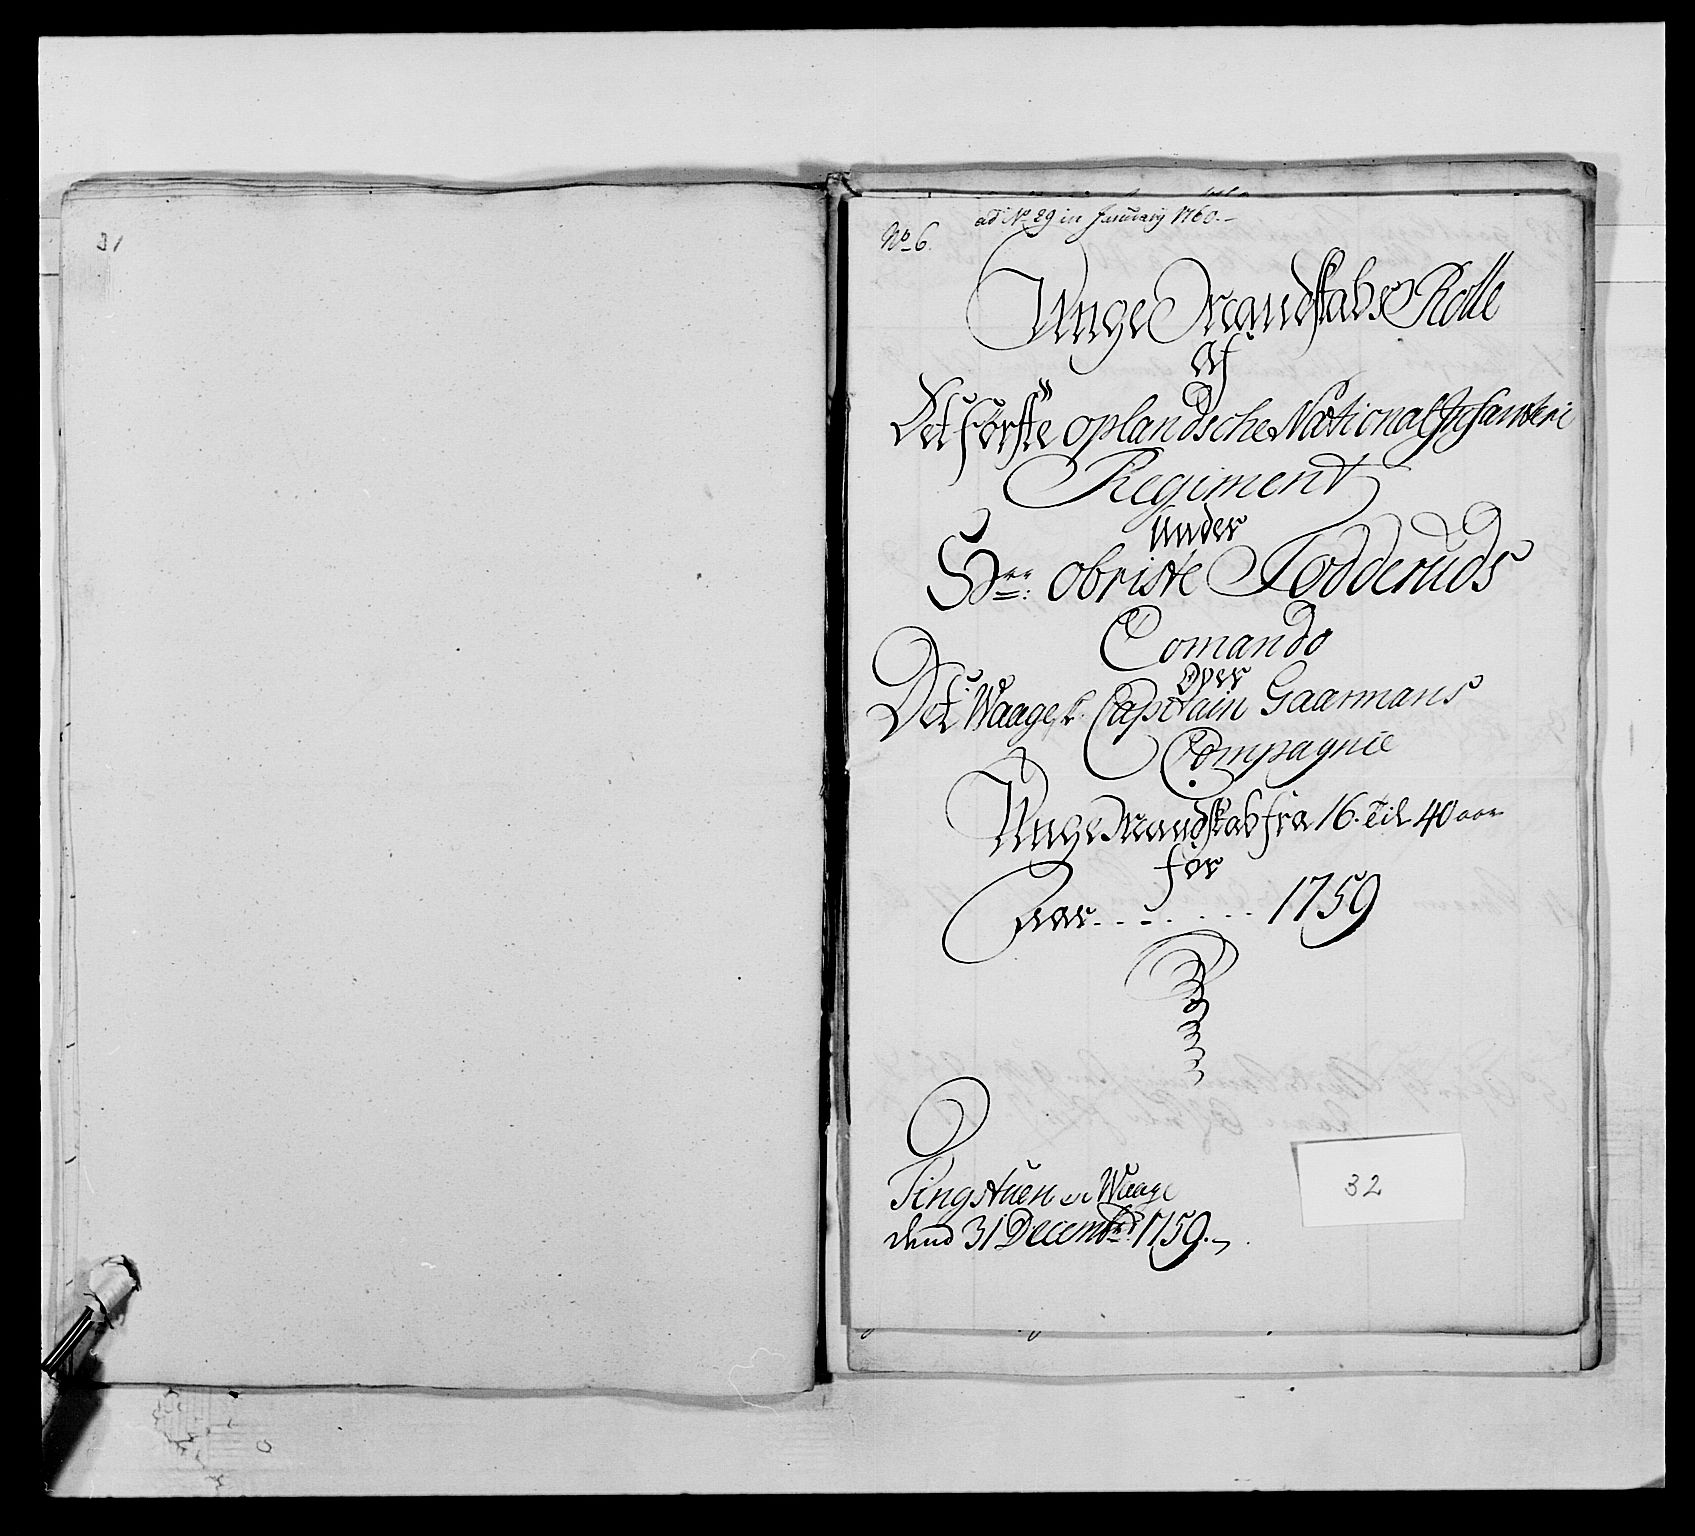 31
ad No 29 in Januarij 1760.
No 6.
Unge Mandskabs Rolle
af
Det første oplandsche National Infanteri
Regiment
Under
Hrr: Obriste Todderuds
Comando
Over
Det Waagesk. Captain Gaarmans
Compagnie
Unge Mandskab fra 16. Til 40 aar
for
Aar 1759
Tingstuen Waage
dend 31 Decembr: 1759.
32